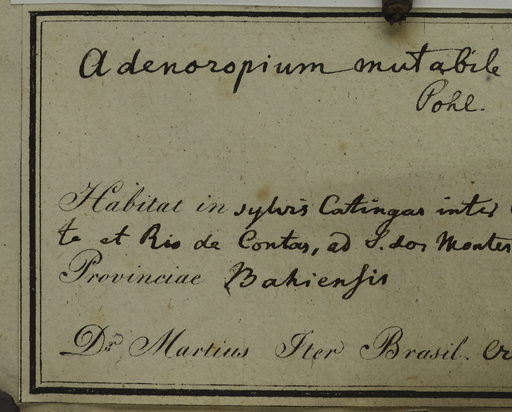 Adenoropium mutabile
Pohl.
Habitat in sylvis Catingas inter
te et Rio de Contas, ad S. dos Montes
Provinciae Bahiensis
Dr. Martius Iter Brasil.